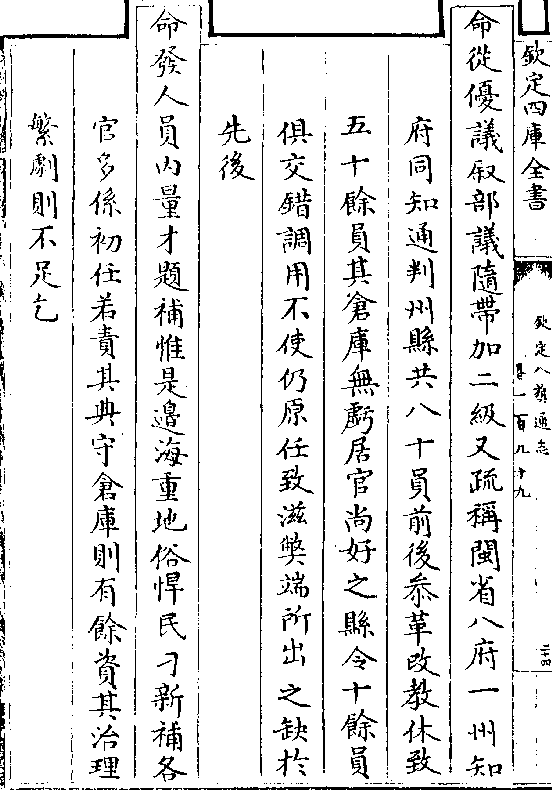 欽定四庫全書
欽定八旗通志
卷一百九十九
二十四
命從優議叙部議隨帶加二級又疏稱閩省八府一州知
府同知通判州縣共八十員前後叅革改教休致
五十餘員其倉庫無虧居官尚好之縣令十餘員
俱交錯調用不使仍原任致滋弊端所出之缺於
先後
命發人員內量才題補惟是邊海重地俗悍民刁新補各
官多係初任若責其典守倉庫則有餘資其治理
繁劇則不足乞